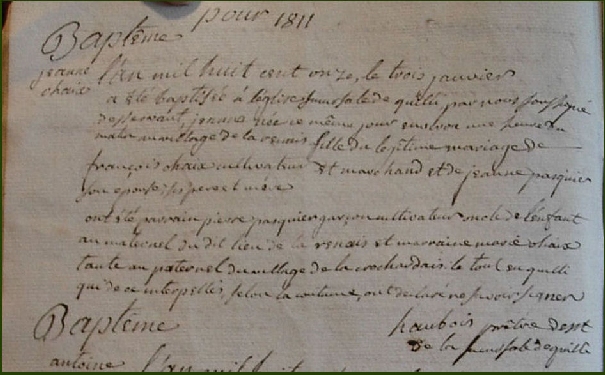 pour 1811
Baptême
jeanne chaix
l'an mil huit cent onze, le trois janvier
a été baptisée à l'église succursale de par nous soussigné
desservant jeanne née ce même jour environ une heure du
matin au village de la fille du légitime mariage de
françois chaix cultivateur et marchand et de jeanne pasquier
son épouse ses pere et mere
ont été parrain pierre pasquier garçon cultivateur oncle de l'enfant
au maternel du dit lieu de la et marraine marie chaix
tante au paternel du village de la le tout en
qui de ce interpellés selon la coutume, ont declaré ne savoir signer
Baptême
haubois prêtre desst
de la succursale de
antoine l'an mil huit